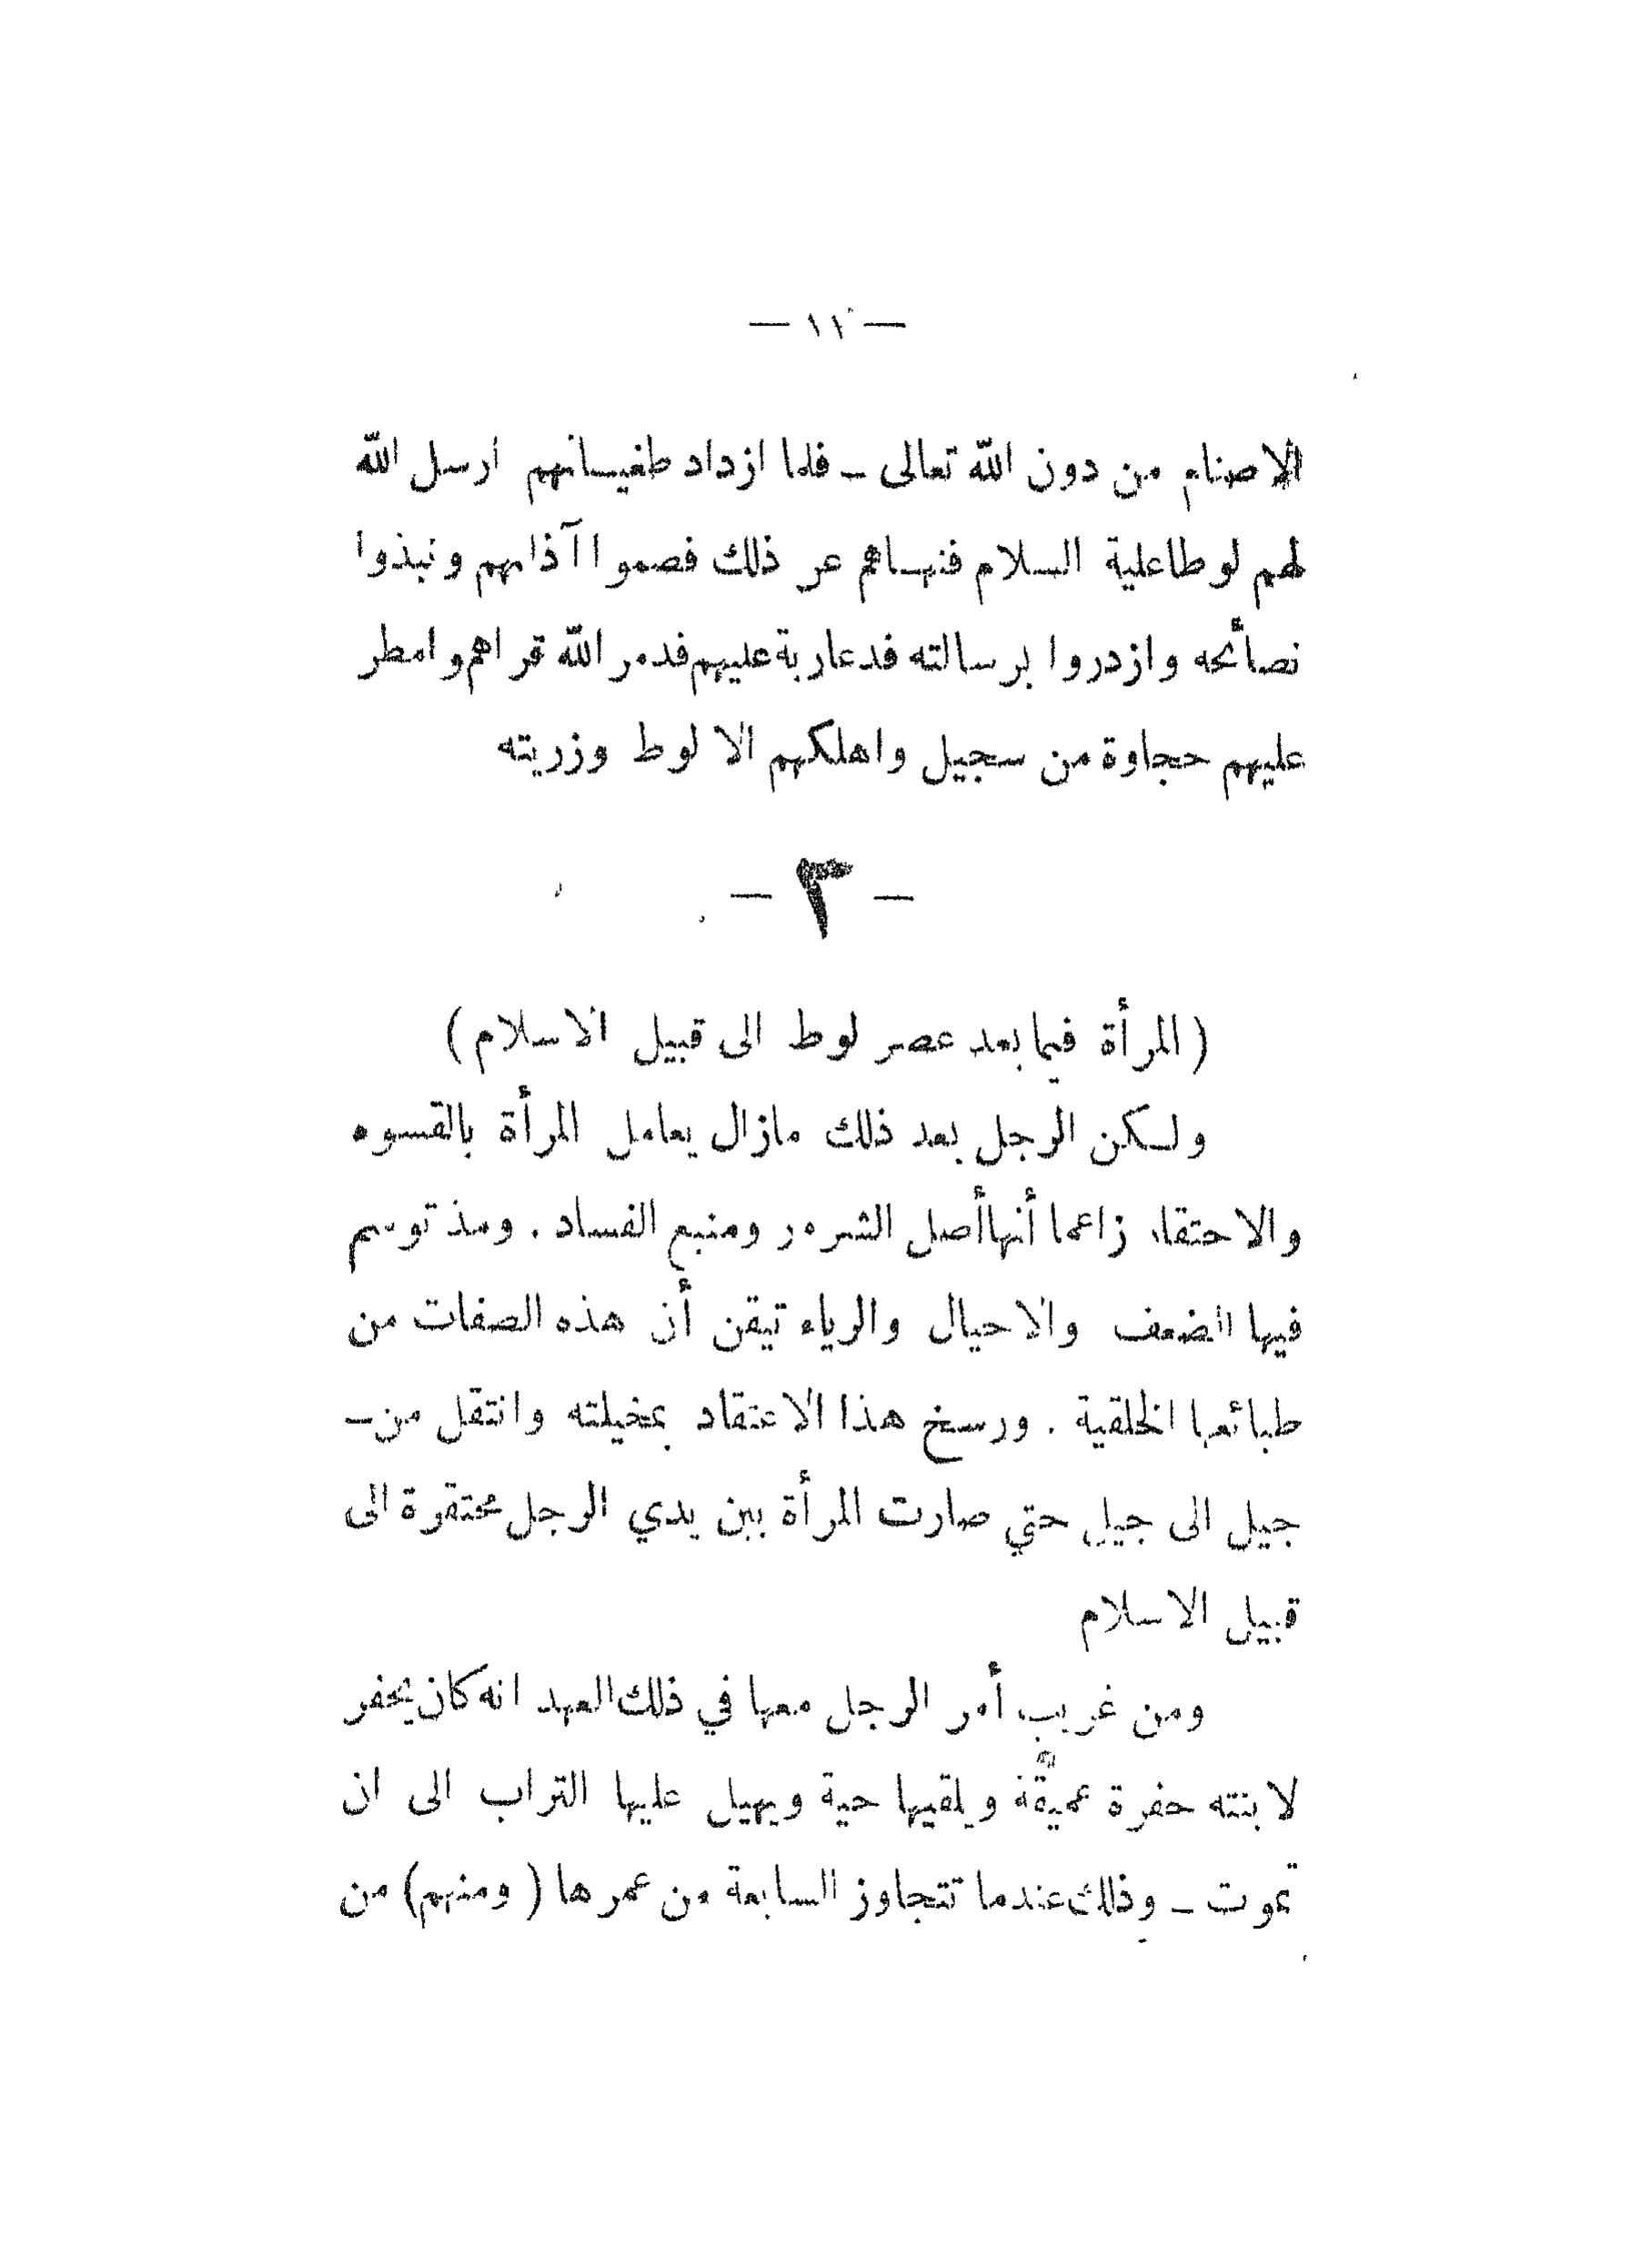 — ١١ —
الاصنام من دون الله تعالى ـ فلما ازداد طغيانهم ارسل الله
لهم لوطا علية السلام فنهاهم عن ذلك فصموا آذانهم ونبذوا
نصأئحه وازدروا برسالته فدعا ربة عليهم فدمر الله قراهم وامطر
عليهم حجاوة من سجيل واهلكهم الا لوط وزريته
— ٣ —
( المرأة فيما بعد عصر لوط الى قبيل الاسلام )
ولكن الرجل بعد ذلك مازال يعامل المرأة بالقسوه
والاحتقار زاعما أنها أصل الشرور ومنبع الفساد . ومذ توسم
فيها الضعف والاحيال والرياء تيقن أن هذه الصفات من
طبائعها الخلقية . ورسخ هذا الاعتقاد بمخيلته وانتقل من ـ
جيل الى جيل حتي صارت المرأة بين يدي الرجل محتقرة الى
قبيل الاسلام
ومن غريب أمر الرجل معها في ذلك العهد انه كان يحفر
لابنته حفرة عميقة ويلقيها حية ويهيل عليها التراب الى ان
تموت ـ وذلك عندما تتجاوز السابعة من عمرها ( ومنهم ) من